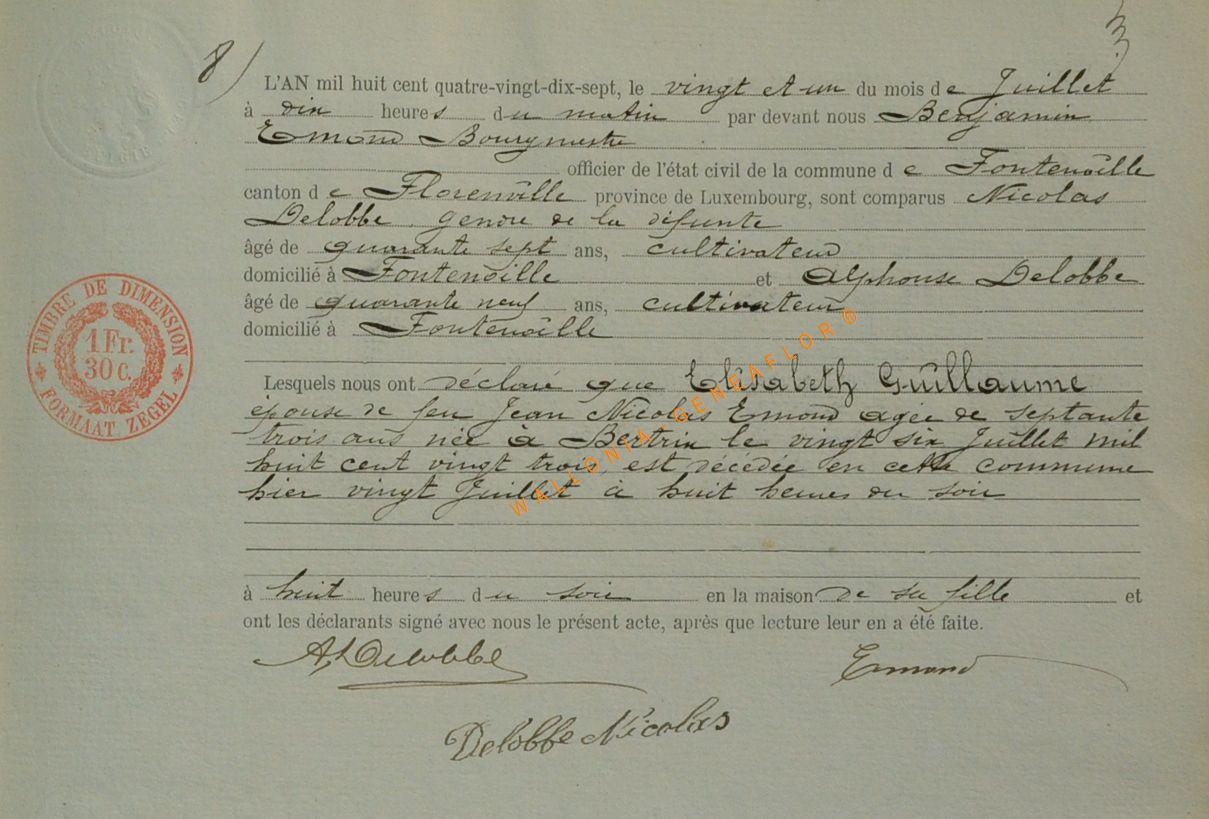 8)
3
L'AN mil huit cent quatre-vingt-dix-sept, le vingt et un du mois de Juillet
à dix heures du matin par devant nous Benjamin
Emond Bourgmestre
officier de l'état civil de la commune de Fontenoille
canton de Florenville province de Luxembourg, sont comparus Nicolas
Delobbe gendre de la défunte
âgé de quarante sept ans, cultivateur
domicilié à Fontenoille et Alphonse Delobbe
âgé de quarante neuf ans, cultivateur
domicilié à Fontenoille
Lesquels nous ont déclaré que Elisabeth Guillaume
épouse de feu Jean Nicolas Emond agée de septante
trois ans née à Bertrix le vingt six Juillet mil
huit cent vingt trois, est décédée en cette commune
hier vingt Juillet à huit heures du soir
à huit heures du soir en la maison de sa fille et
ont les déclarants signé avec nous le présent acte, après que lecture leur en a été faite.
A, Delobbe Emond
Delobbe Nicolas
TIMBRE DE DIMENSION
1 Fr.
30 C.
FORMAAT ZEGEL
WALLONIA-GENEAFLOR®